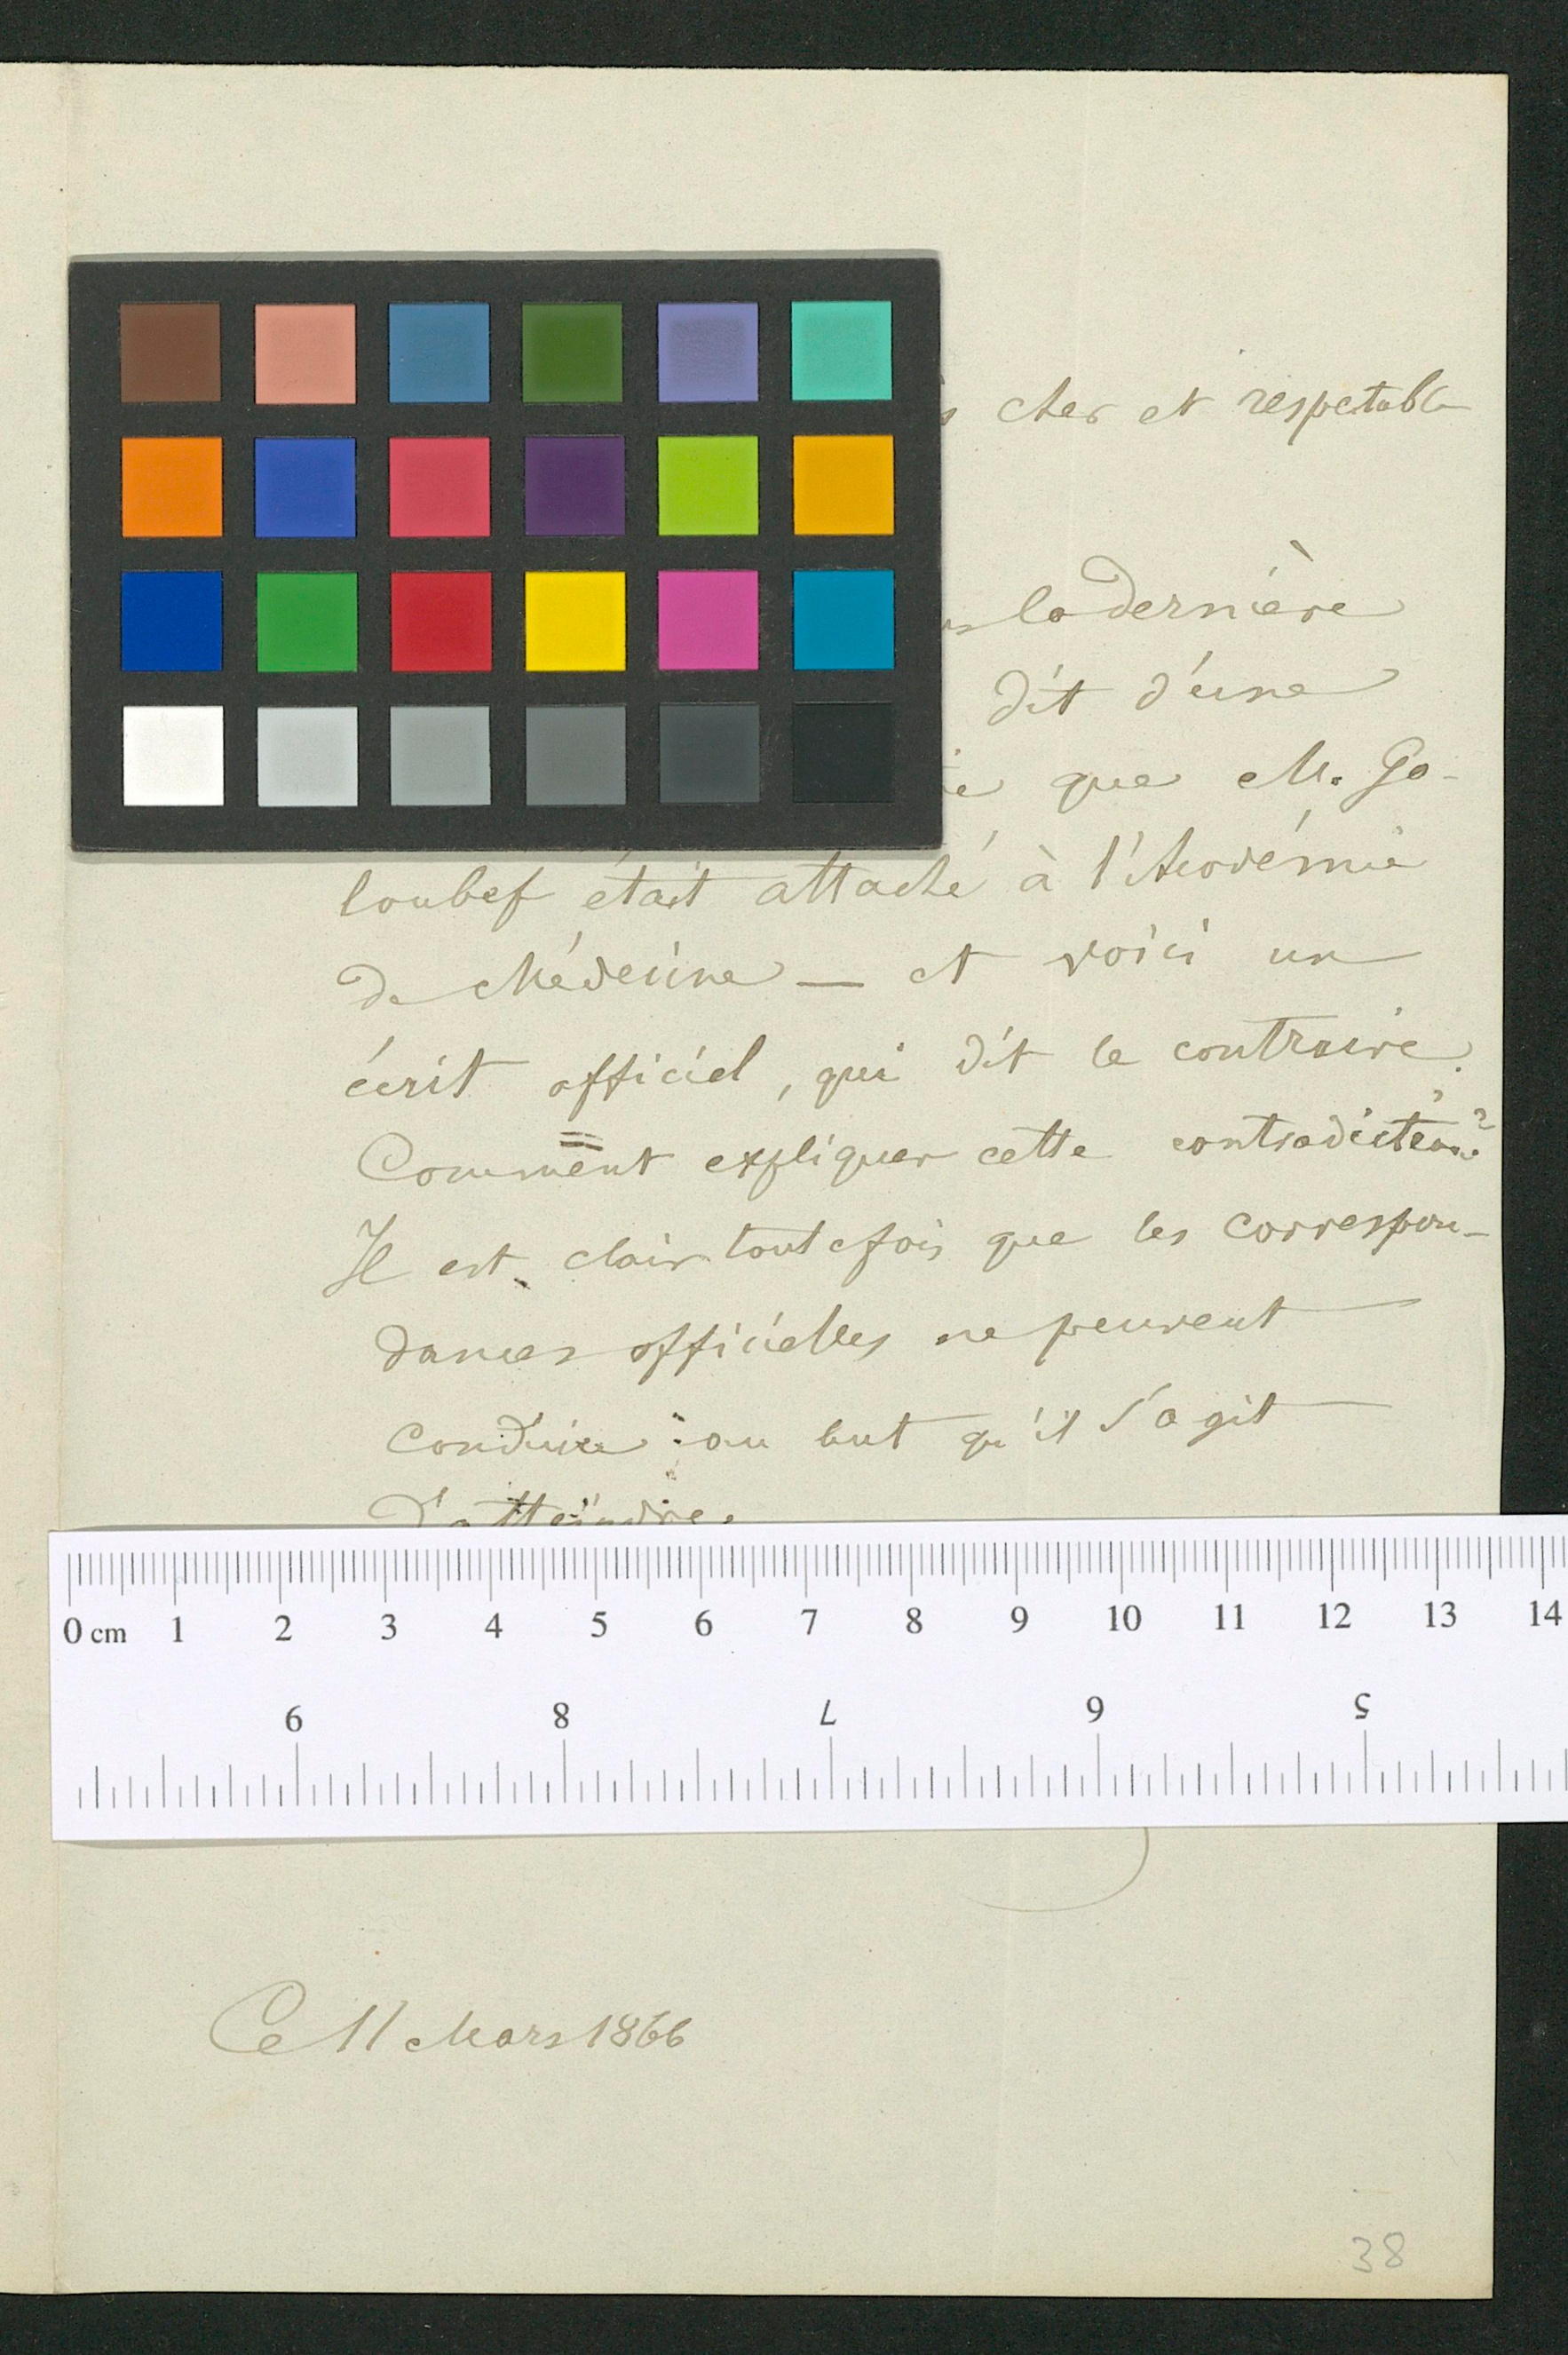 cher et respetable
la dernière
dit d'une
que M. Go-
loubef était attaché à l'Académie
de Médecine — et voici un
écrit officiel, qui dit le contraire.
Comment expliquer cette contradiction?
Il est clair toutefois que les correspon-
dances officielles ne peuvent
conduire au but qu'il s'agit
d'atteindre.
0 cm 1 2 3 4 5 6 7 8 9 10 11 12 13 14
9 8 7 6 5
Ce 11 Mars 1866
38